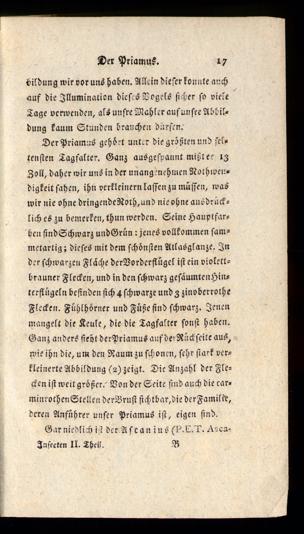 Der Priamus. 17
bildung wir vor uns haben. Allein dieser konnte auch
auf die Illumination dieses Vogels sicher so viele
Tage verwenden, als unsre Mahler auf unsre Abbil-
dung kaum Stunden brauchen dürfen.
Der Priamus gehört unter die größten und sel-
tensten Tagfalter. Ganz ausgespannt mißt er 13
Zoll, daher wir uns in der unangenehmen Nothwen-
digkeit sahen, ihn verkleinern lassen zu müssen, was
wir nie ohne dringende Noth, und nie ohne ausdrück-
lich es zu bemerken, thun werden. Seine Hauptfar-
ben sind Schwarz und Grün: jenes vollkommen sam-
metartig; dieses mit dem schönsten Atlasglanze. In
der schwarzen Fläche der Vorderflügel ist ein violett-
brauner Flecken, und in den schwarz gesäumten Hin-
terflügeln befinden sich 4 schwarze und 3 zinoberrothe
Flecken. Fühlhörner und Füße sind schwarz. Jenen
mangelt die Keule, die die Tagfalter sonst haben.
Ganz anders sieht der Priamus auf der Rückseite aus,
wie ihn die, um den Raum zu schonen, sehr stark ver-
kleinerte Abbildung (2) zeigt. Die Anzahl der Fle-
cken ist weit größer. Von der Seite sind auch die car-
minrothen Stellen der Brust sichtbar, die der Familie,
deren Anführer unser Priamus ist, eigen sind.
Gar niedlich ist der Ascanius (P. E. T. Asca-
Insecten II. Theil. B